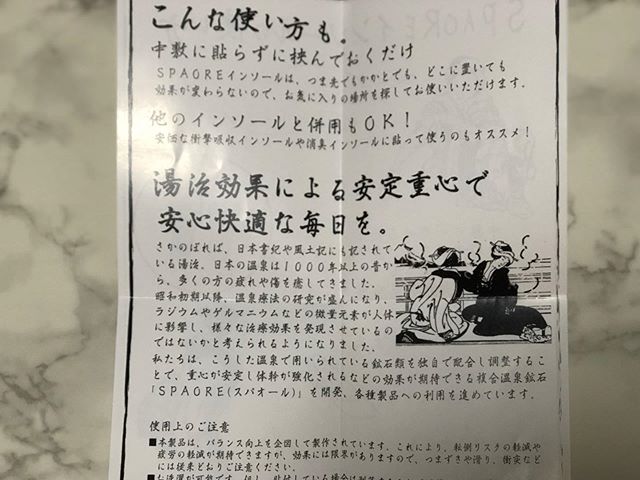 こんな使い方も。
中敷に貼らずに挟んでおくだけ
SPAOREインソールは、つま先でもかかとでも、どこに置いても
効果が変わらないので、お気に入りの場所を探してお使いいただけます。
他のインソールと併用もOK!
安価な衝撃吸収インソールや消臭インソールに貼って使うのもオススメ!
湯治効果による安定重心で
安心快適な毎日を。
さかのぼれば、日本書紀や風土記にも記されて
いる湯治。日本の温泉は1000年以上の昔か
ら、多くの方の疲れや傷を癒してきました。
昭和初期以降、温泉療法の研究が盛んになり、
ラジウムやゲルマニウムなどの微量元素が人体
に影響し、様々な治療効果を発現させているの
ではないかと考えられるようになりました。
私たちは、こうした温泉で用いられている鉱石類を独自で配合し調整するこ
とで、重心が安定し体幹が強化されるなどの効果が期待できる複合温泉鉱石
「SPAORE(スパオール)」を開発、各種製品への利用を進めています。
使用上のご注意
■本製品は、バランス向上を企図して製作されています。これにより、転倒リスクの軽減や
疲労の軽減が期待できますが、効果には限界がありますので、つまずきや滑り、衝突など
には従来どおりご注意ください。